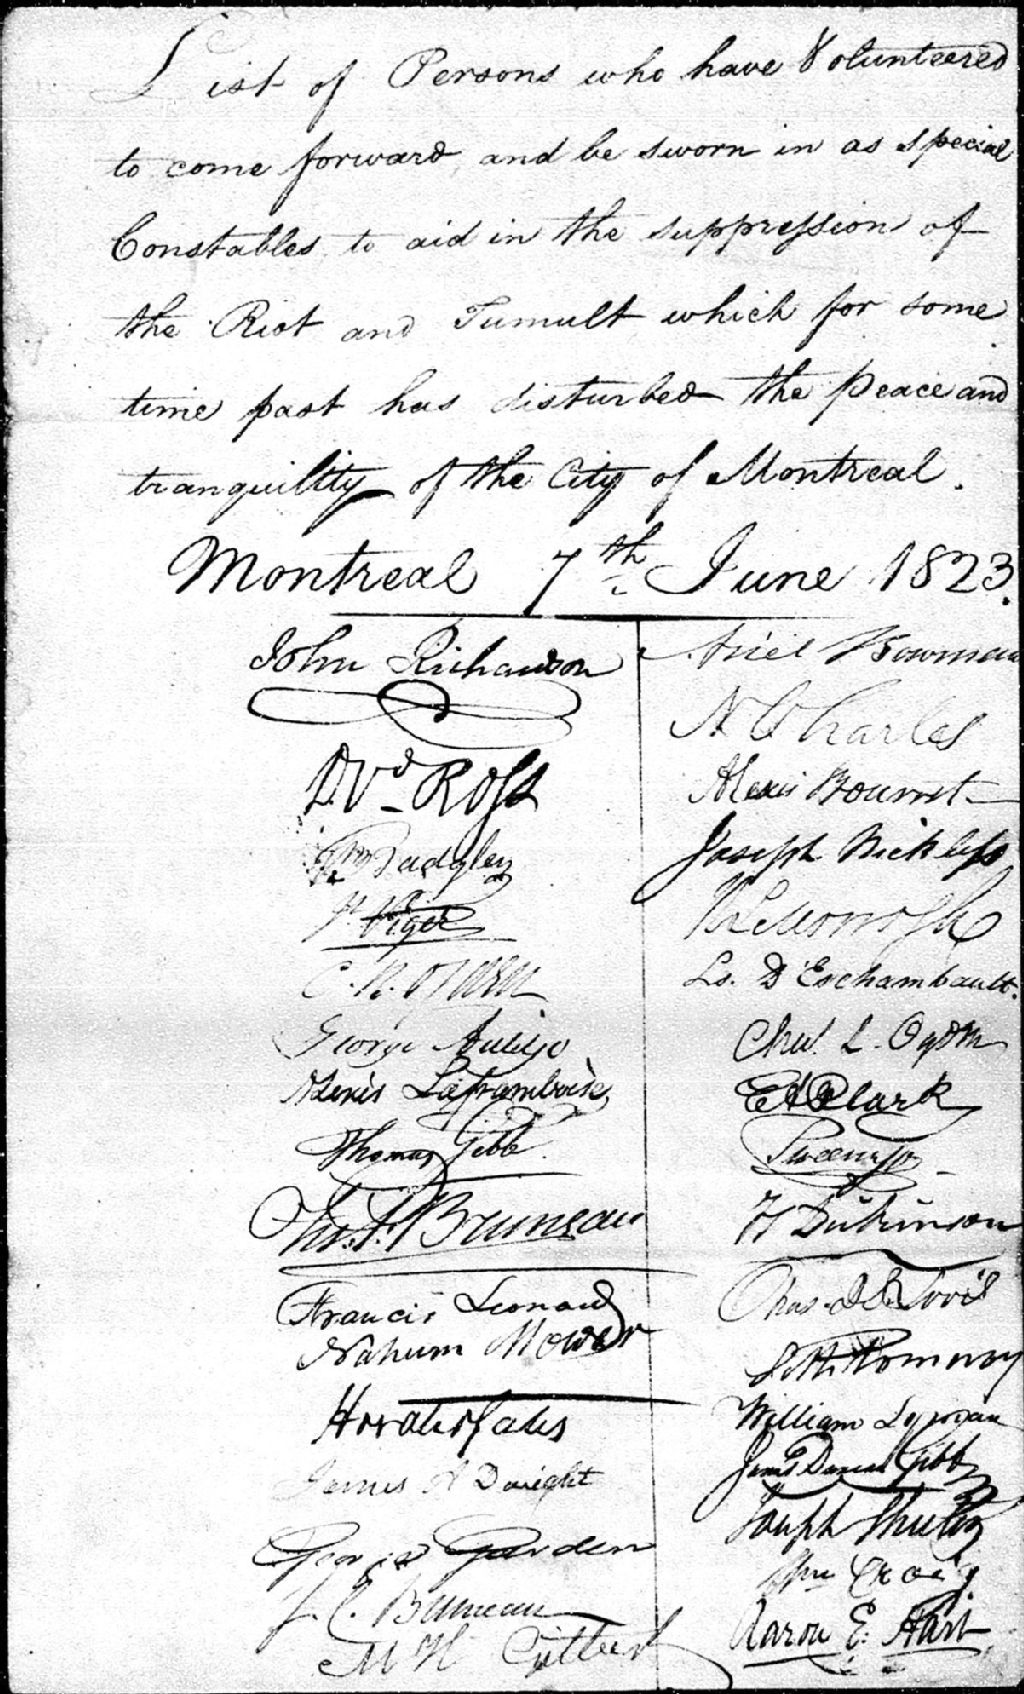 List of Persons who have Volunteered
to come forward, and be sworn in as special
Constables to aid in the suppression of
the Riot and Tumult which for some
time past has disturbed the peace and
tranquiltty of the City of Montreal.
Montreal 7th June 1823.
John Richardson
Dvd Ross
Wm Badgley
Viger
C. R. Ogden
George
Alexis Laframboise
Thomas Gibb
Bruneau
Francis Leonard
Nahum Mower
Horatio Gates
James A Dwight
George Garden
J. C. Bruneau
M H
Ariel Bowman
N Charles
Alexis Bourret
Joseph Nickless
Ls. D'Eschambault.
Chs. L. Ogden
Clark
Sweeny
Dickinson
Chas.
William Lyman
James Duncan Gibb
Joseph Shuter
Wm Craig
Aaron E. Hart